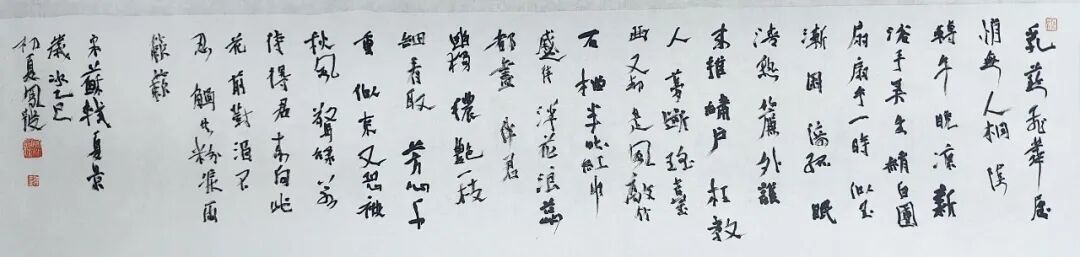 乳燕飛華屋
悄無人桐陰
轉午晚凉新
浴手弄生綃白團
扇扇手一時似玉
漸困倚孤眠
清熟簾外誰
来推繡户枉教
人夢断瑶臺
曲又却是風敲竹
石榴半吐紅巾
蹙待浮花浪蕊
都盡伴君
幽獨穠艷一枝
細看取芳心千
重似束又恐被
秋風驚緑若
待得君来向此
花前對酒不
忍觸共粉淚両
簌簌
宋蘇軾夏景
歲次乙巳
初夏